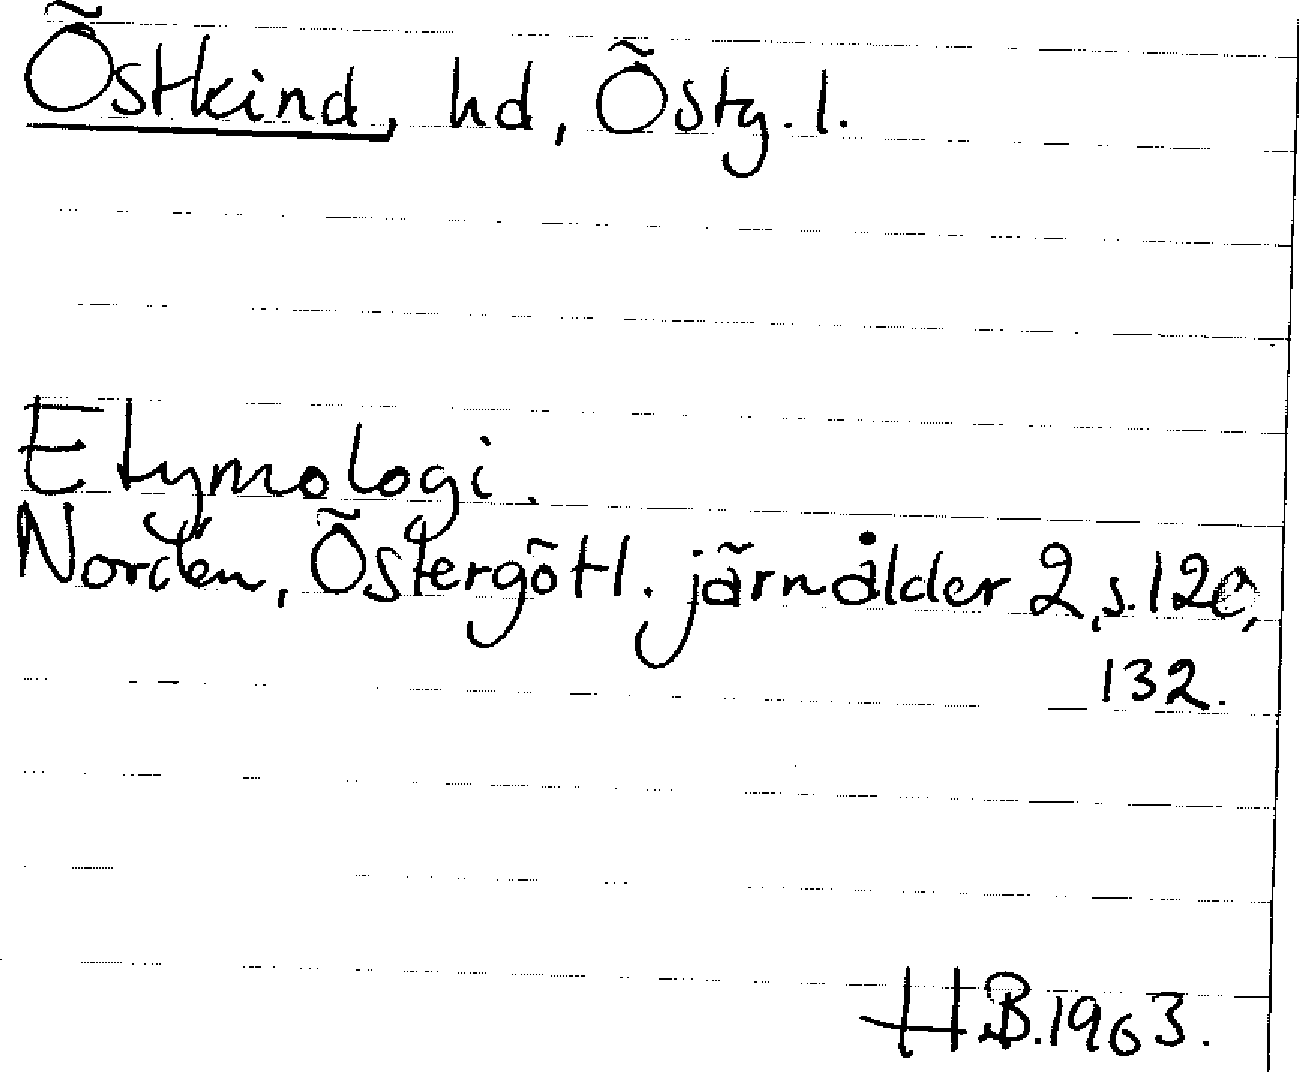 Östkind, hd, Östg. l.
Etymologi.
Nordén, Östergötl. järnålder 2, s. 120,
132.
H.B. 1963.